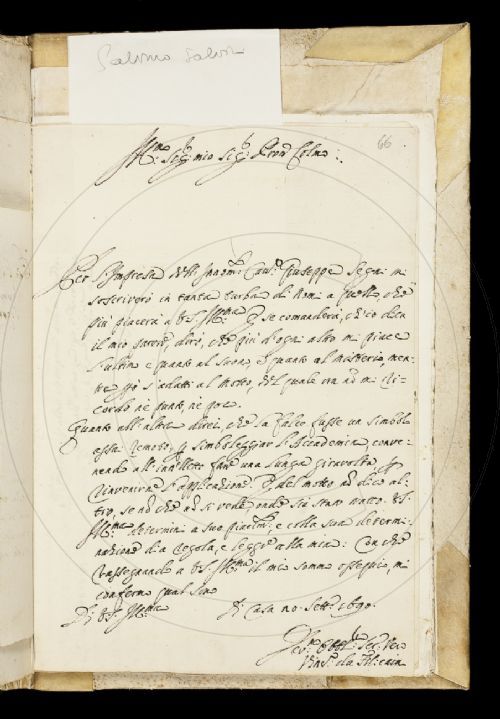 Salvino Salvini
66
Ill:mo Sig:r mio Sig:r Pron Colmo:
Per l'Impresa dell' Innom: Cav: Giuseppe Segni mi
soscriverò in tanta turba di Nomi a quello, che
più piacerà a VS. Ill:ma E se comanderà, ch'io dica
il mio parere, dirò, che più d'ogni altro mi piace
l'ultimo e quanto al suono, e quanto al misterio, men-
tre s'adatti al Motto, del quale ora nõ mi ri-
cordo nè punto, nè poco.
Quanto all' altre direi, che la Falce fusse un simbolo
assai remoto, p simboleggiar l'Accademia conve-
nendo all' intelletto fare una lunga giravolta p
rinvenirne l'applicazione. E del motto nõ dico al-
tro, se nõ che nõ si vede onde sia stato tratto. VS.
Ill:ma determini a suo piacim:to e colla sua determi-
nazione dia regola, e legge alla mia: Con che
rassegnando a VS. Ill:ma il mio sommo ossequio, mi
confermo qual sono
Di VS. Ill:ma
Di Casa 10. Sett: 1690.
Dev:mo Obbl: Ser: Vero